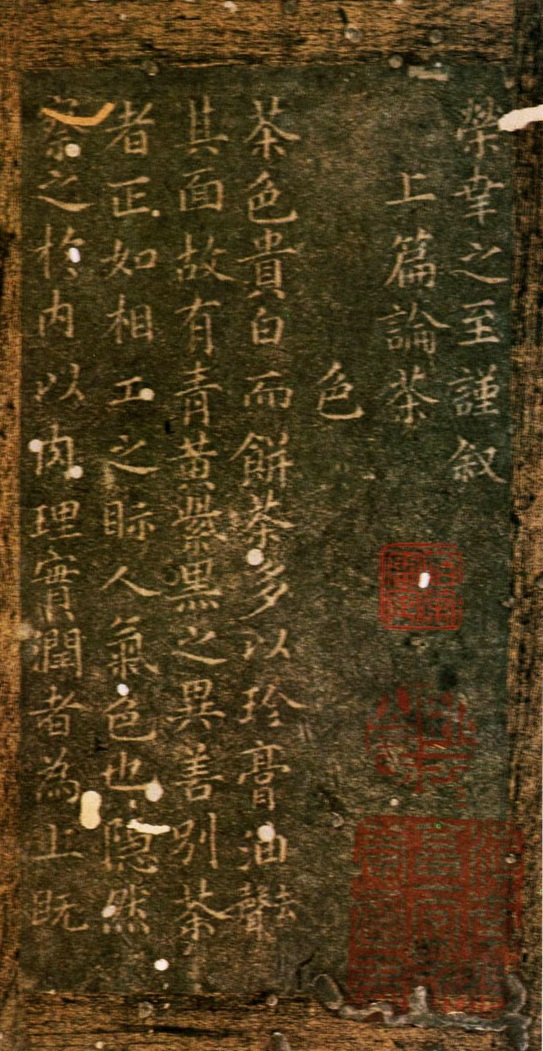 榮幸之至謹叙
上篇論茶
色
茶色貴白而餅茶多以珍膏油去聲
其面故有青黃紫黑之異善别茶
者正如相工之眎人氣色也隱然
察之於内以肉理實潤者為上既